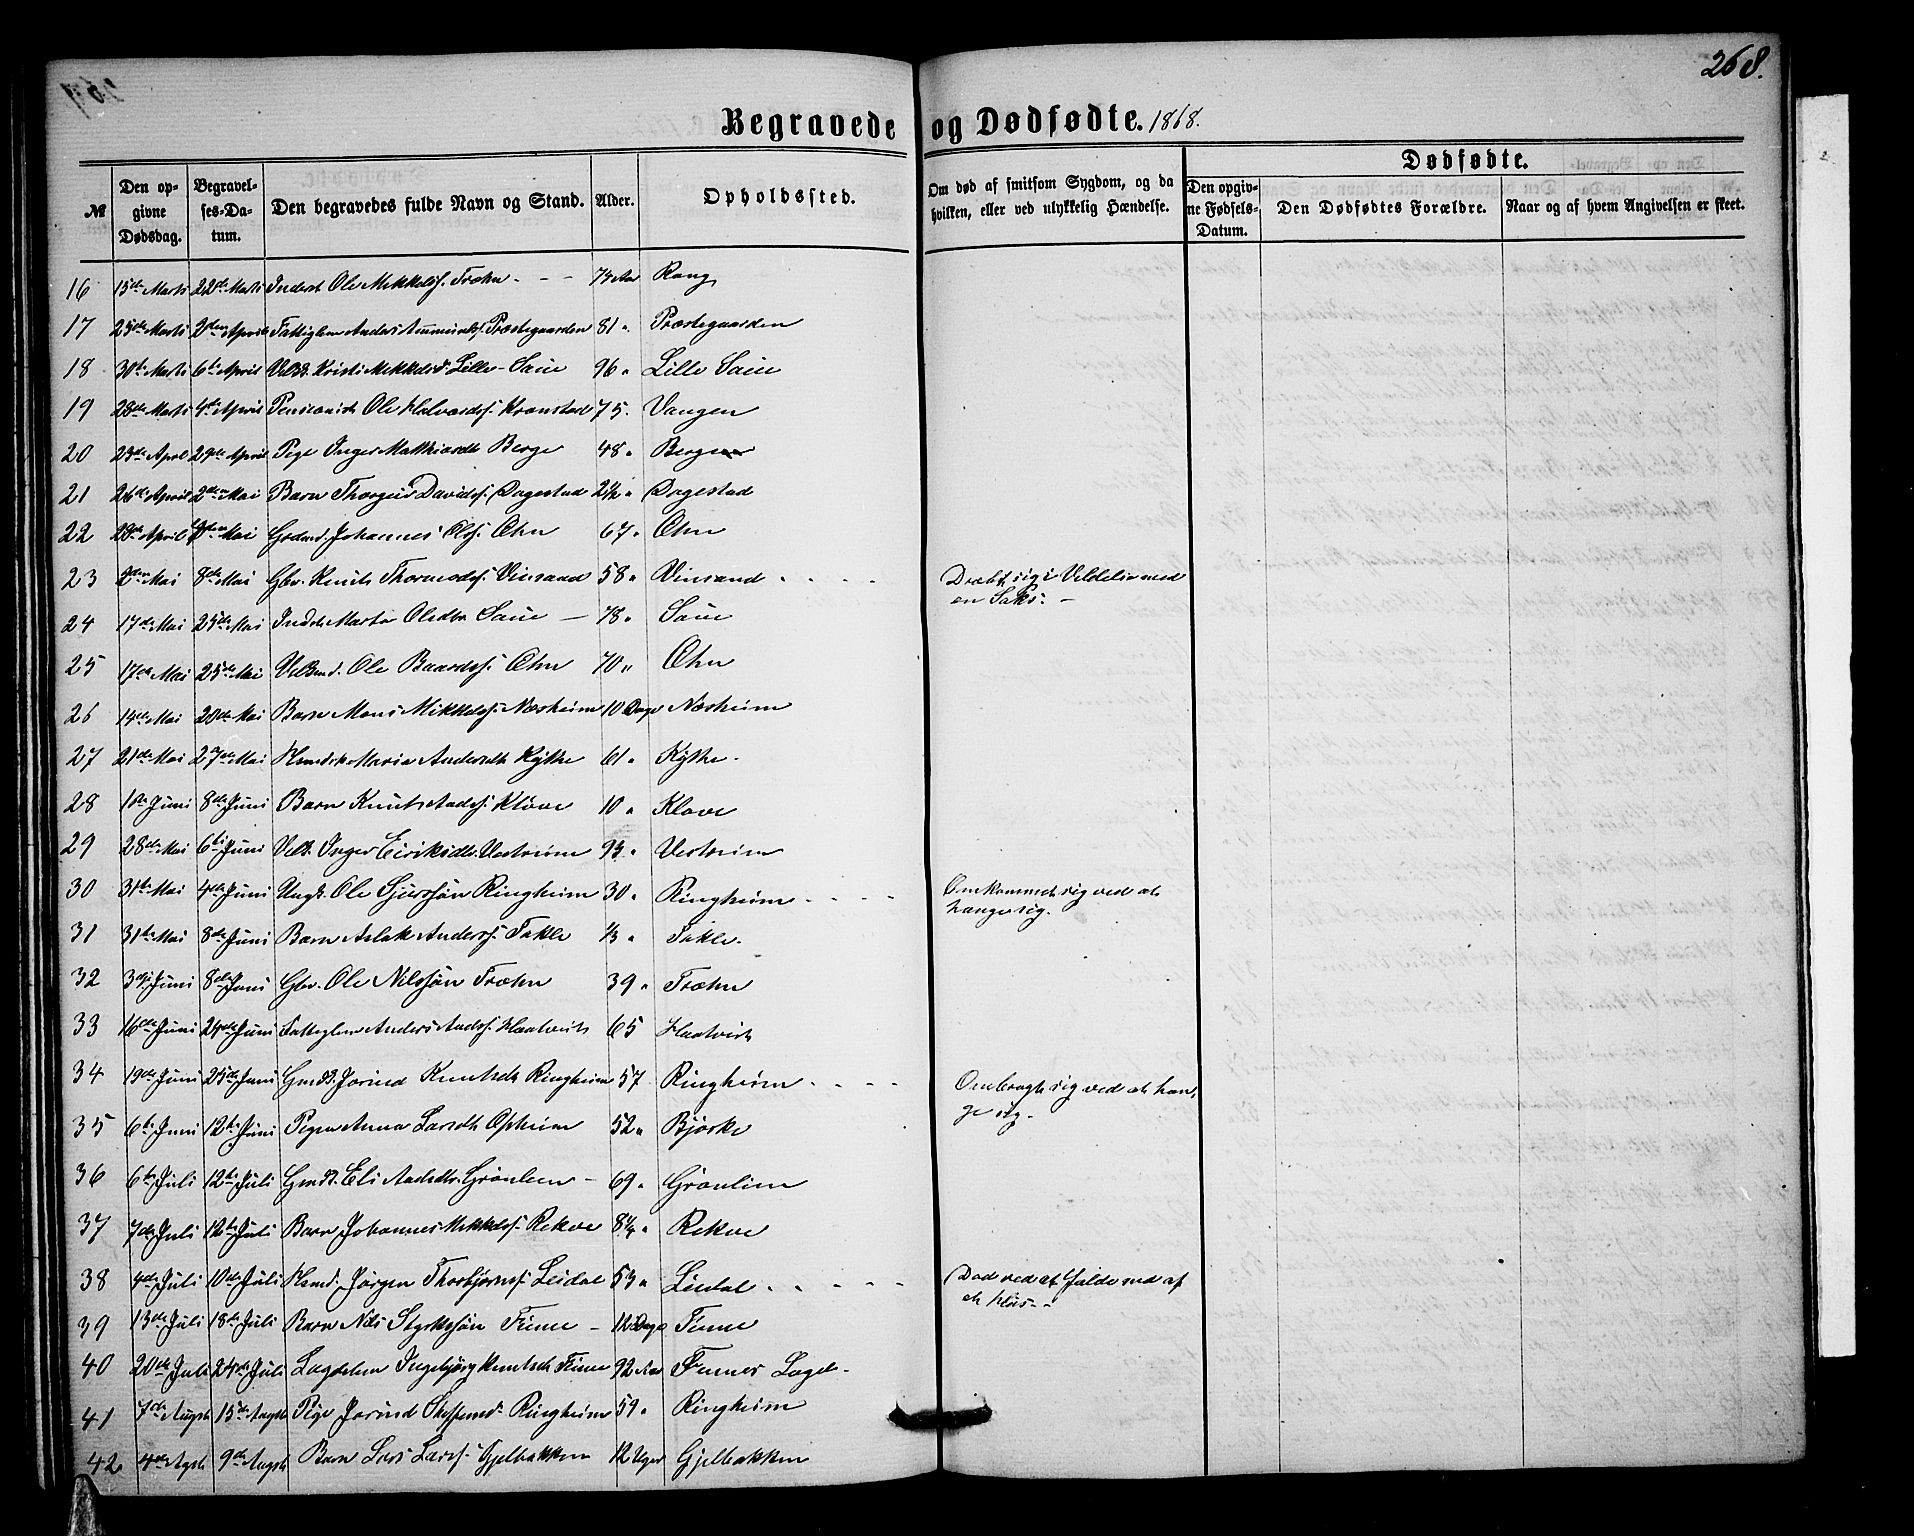 268.
Begravede og Dødfødte. 1868.
№ | Den opgivne Dødsdag. | Begravelses-Datum. | Den begravedes fulde Navn og Stand. | Alder. | Opholdssted. | Om død af smitsom Sygdom, og da hvilken, eller ved ulykkelig Hændelse. | Dødfødte. Den opgivne Fødsels-Datum. | Den Dødfødtes Forældre. | Naar og af hvem Angivelsen er skeet.
16 15de Marts 22de Marts Inderst Ole Mikkelss. Træhn 74 Aar Rong
17 25de Marts 2den April Fattiglem Anders Præstegaarden 81 " Præstegaarden
18 30te Marts 6te April Kristi Mikkelsd. Lille-Saue 96 " Lille Saue
19 28de Marts 4de April Pensionist Ole Halvordss. Kronstad 75. Vangen
20 April 29de April Pige Inger Mathiasdt. Berge 48 " Berge
21 26de April 2den Mai Barn Thorgeir Davidss. Dagestad 2½ " Dagestad
22 28de April Mai Johannes Olss. Æthn 67 " Æthn
23 2den Mai 8de Mai Gbr. Knut Thomasss. Vinsand 58 " Vinsand Dræbt sig i Vildelse med
en Saks. -
24 17de Mai 25de Mai Marta Olsdtr. Saue 78 " Saue
25 17de Mai 25de Mai Ole Baardss. Æthn 70 " Æthn
26 14de Mai 20de Mai Barn Mons Mikkelss. Næsheim 10 Dage Næsheim
27 21de Mai 27de Mai Maria Andersdt. Kythe 61 " Kythe.
28 1ste Juni 8de Juni Barn Knut Aadss. Kløve 10 " Kløve
29 28de Mai 6te Juni Inger Eiriksdtr. Vestreim 93 " Vestreim
30 31te Mai 4de Juni Ungk. Ole Sjurssøn Ringheim 30 " Ringheim Omkommet sig ved at
hænge sig.
31 31te Mai 8de Juni Barn Aslak Anderss. Takle ⅓ " Takle.
32 3die Juni 8de Juni Gbr. Ole Nilssøn Træhn 39 " Træhn
33 16de Juni 24de Juni Fattiglem Anders Aadss. Haatveit 65 Haatveit
34 19de Juni 25de Juni Jorind Knutsdt. Ringheim 57 Ringheim Ombragt sig ved at hæn-
ge sig.
35 6te Juni 12te Juni Pigen Anna Larsdt. Opheim 52 " Bjørke
36 6te Juli 12te Juli Eli Aadsdtr. Grønlien - 69 " Grønlien
37 7de Juli 12te Juli Barn Johannes Mikkelss. Rekve 8¼ " Rekve
38 4de Juli 10de Juli Jørgen Thorbjørnss. Leidal 53 " Leidal Død ved at falde ned af
et
39 13de Juli 18de Juli Barn Nils Styrkssøn Finne - 12 Dage Finne
40 20de Juli 24de Juli Lægdslem Ingebjørg Knutsdt. Finne 92 Aar Finnes Lægd -
41 7de Augst 15de Augst Pige Jorind Ringheim 59 " Ringheim
42 4de Agst. 9de Augst Barn Lars Larss. Gjelbakken 12 Uger Gjelbakken